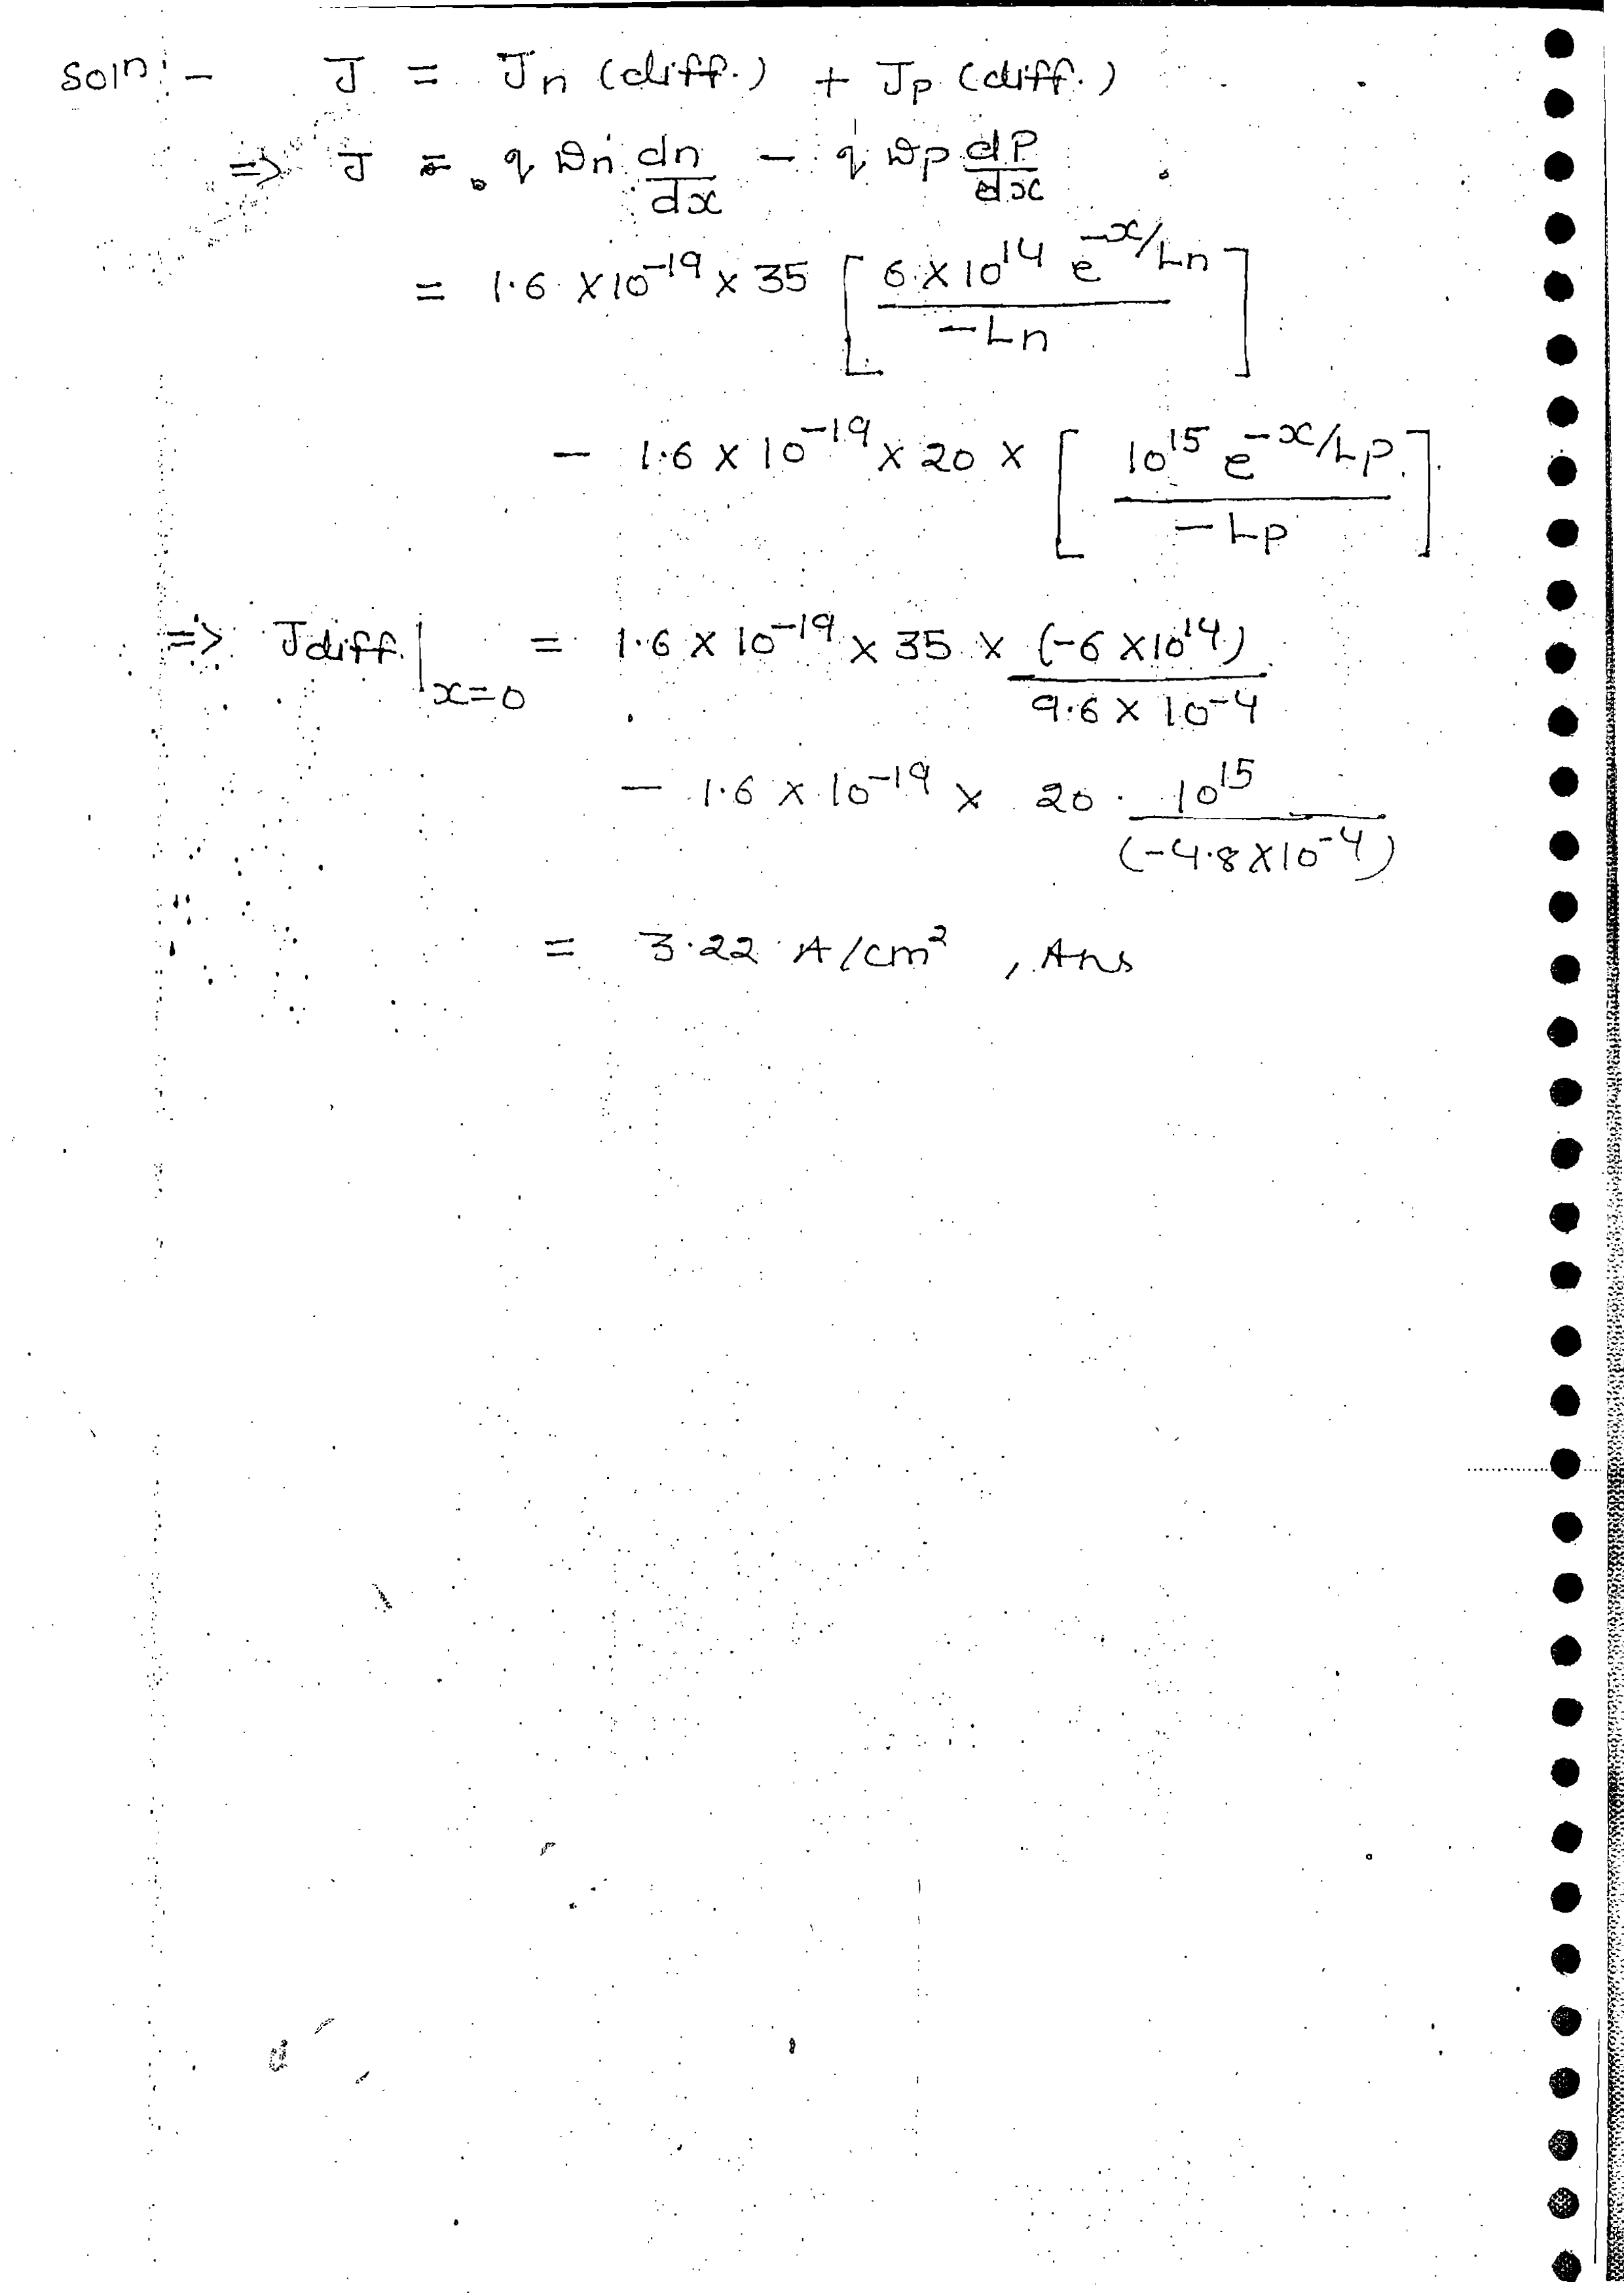 Soln :- J = Jn (diff.) + Jp (diff.)
=> J = q Dn dn/dx - q Dp dP/dx
= 1.6 × 10^-19 × 35 [ 6 × 10^14 e^-x/Ln / -Ln ]
- 1.6 × 10^-19 × 20 × [ 10^15 e^-x/Lp / -Lp ]
=> Jdiff.|x=0 = 1.6 × 10^-19 × 35 × (-6 × 10^14) / 9.6 × 10^-4
- 1.6 × 10^-19 × 20 · 10^15 / (-4.8 × 10^-4)
= 3.22 A/cm², Ans